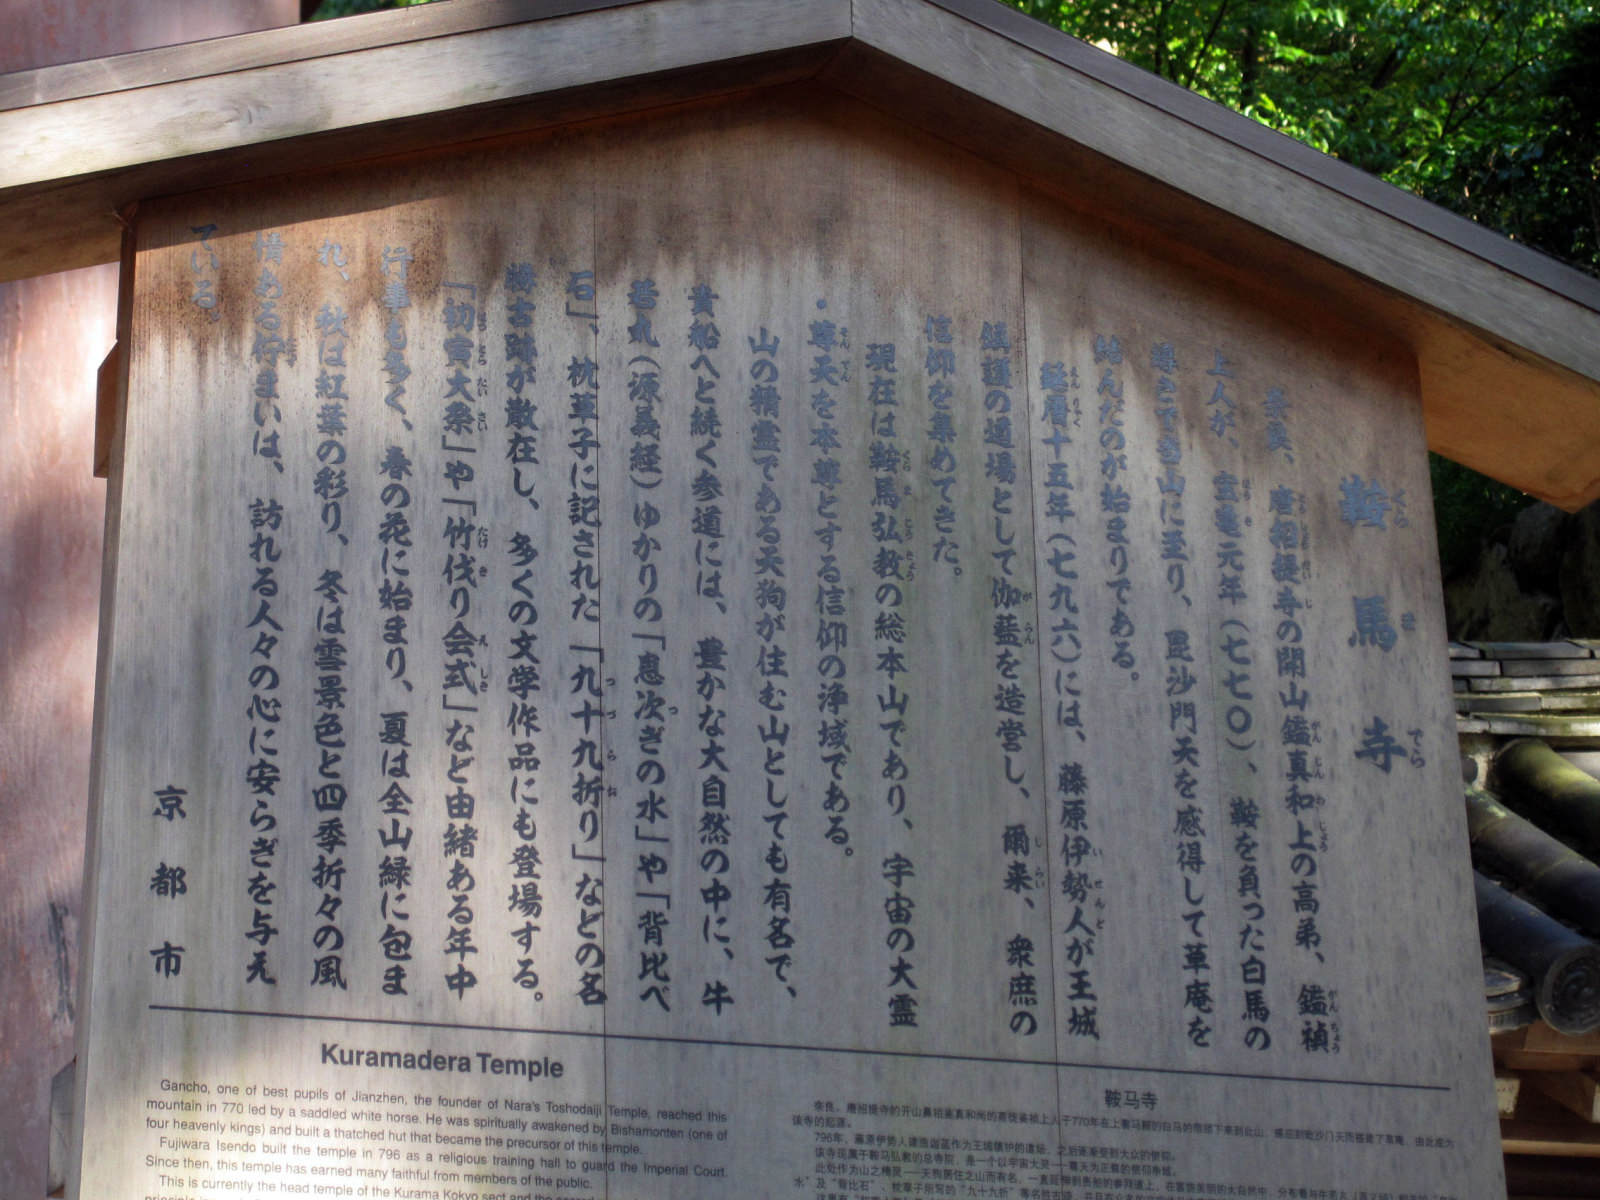 鞍馬寺
奈良、唐招提寺の開山鑑真和上の高弟、鑑禎
上人が、宝亀元年(七七〇)、鞍を負った白馬の
導きで当山に至り、毘沙門天を感得して草庵を
結んだのが始まりである。
延暦十五年(七九六)には、藤原伊勢人が王城
鎮護の道場として伽藍を造営し、爾来、衆庶の
信仰を集めてきた。
現在は鞍馬弘教の総本山であり、宇宙の大霊
・尊天を本尊とする信仰の浄域である。
山の精霊である天狗が住む山としても有名で、
貴船へと続く参道には、豊かな大自然の中に、牛
若丸(源義経)ゆかりの「息次ぎの水」や「背比べ
石」、枕草子に記された「九十九折り」などの名
勝古跡が散在し、多くの文学作品にも登場する。
「初寅大祭」や「竹伐り会式」など由緒ある年中
行事も多く、春の花に始まり、夏は全山緑に包ま
れ、秋は紅葉の彩り、冬は雪景色と四季折々の風
情ある佇まいは、訪れる人々の心に安らぎを与え
ている。
京都市
Kuramadera Temple
Gancho, one of best pupils of Jianzhen, the founder of Nara's Toshodaiji Temple, reached this
mountain in 770 led by a saddled white horse. He was spiritually awakened by Bishamonten (one of
four heavenly kings) and built a thatched hut that became the precursor of this temple.
Fujiwara Isendo built the temple in 796 as a religious training hall to guard the Imperial Court.
Since then, this temple has earned many faithful from members of the public.
This is currently the head temple of the Kurama Kokyo sect and the
鞍马寺
奈良、唐招提寺的开山鼻祖鉴真和尚的高徒鉴祯上人于770年在上鞍马鞍的白马的带领下来到此山，感应到毗沙门天而搭建了草庵，由此成为
该寺的起源。
796年，藤原伊势人建造迦蓝作为王城镇护的道场，之后逐渐受到大众的信仰。
该寺现属于鞍马弘教的总寺院，是一个以宇宙大灵——尊天为正尊的信仰净域。